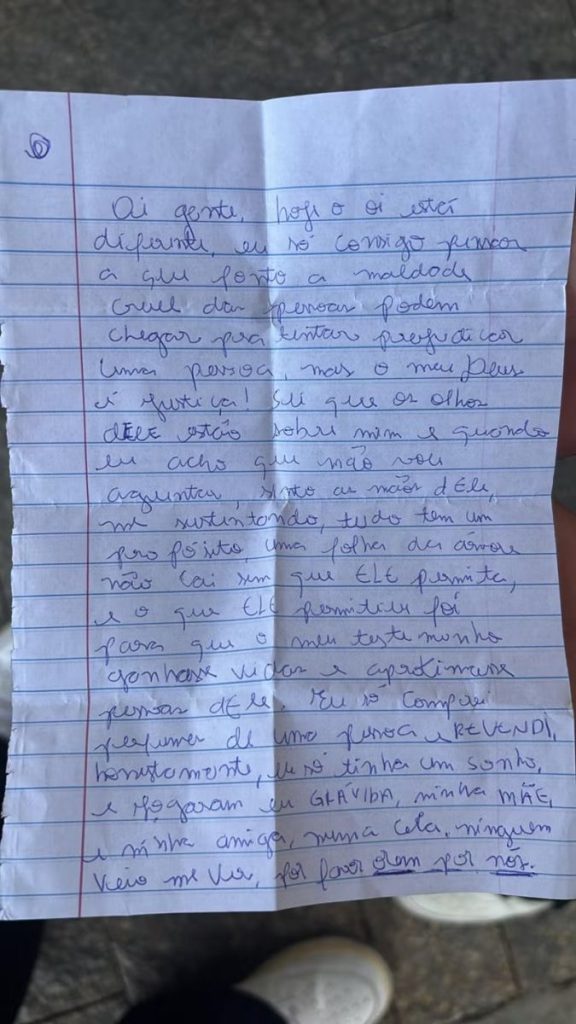 Oi gente, hoje o oi está
diferente, eu só consigo pensar
a que ponto a maldade
cruel das pessoas podem
chegar pra tentar prejudicar
uma pessoa, mas o meu Deus
é justiça! Sei que os olhos
dELE estão sobre mim e quando
eu acho que não vou
aguentar, sinto as mãos dEle,
me sustentando, tudo tem um
propósito, uma folha da árvore
não cai sem que ELE permita,
e o que ELE permitiu foi
para que o meu testemunho
ganhasse vidas e aproximasse
pessoas dEle. Eu só comprei
perfumes de uma pessoa e REVENDI,
honestamente, eu só tinha um sonho,
e jogaram eu GRÁVIDA, minha MÃE,
e minha amiga, numa cela, ninguem
veio me ver, por favor orem por nós.